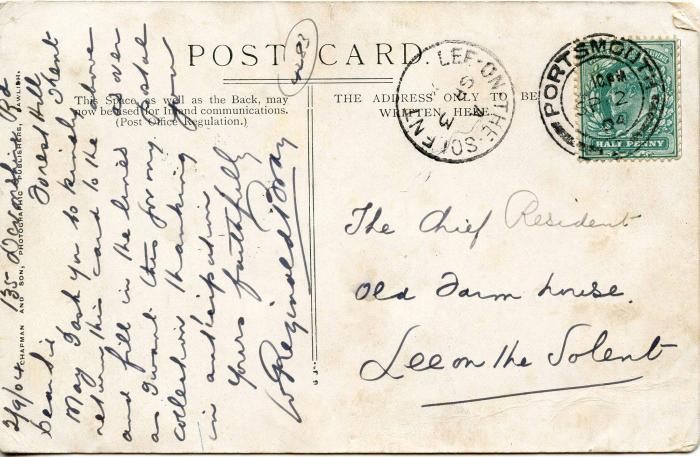 POST CARD.
This Space, as well as the Back, may
now be used for Inland communications.
(Post Office Regulation.)
THE ADDRESS ONLY TO BE
WRITTEN HERE.
LEE-ON-THE-SOLENT
PORTSMOUTH
12
04
HALF PENNY
The Chief Resident
Old Farm house.
Lee on the Solent
2/9/04 135 Devonshire Rd
Forest Hill
Dear Sir
May I ask you to kindly
return this card to the above
and fill in the lines over
as I want this for my Postal
collection thanking you
in anticipation
Yours faithfully
W Reginald Bray
CHAPMAN AND SON, PHOTOGRAPHIC PUBLISHERS, DAWLISH.